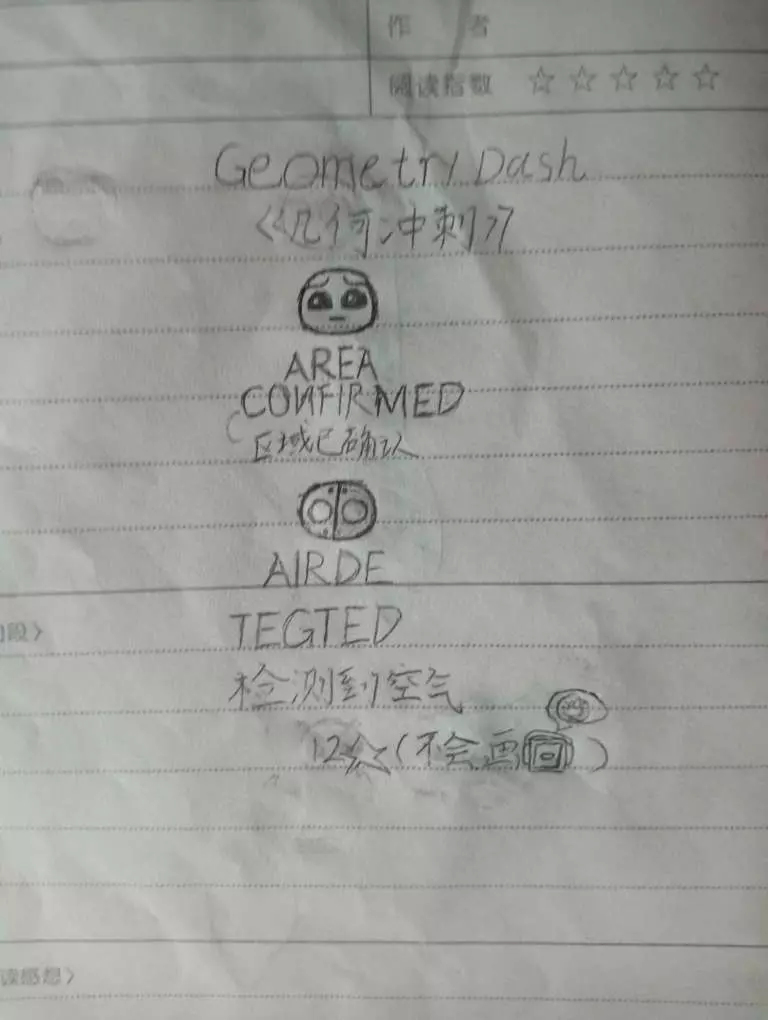 作 者
阅读指数 ☆ ☆ ☆ ☆ ☆
Geometry Dash
《几何冲刺》
AREA
CONFIRMED
区域已确认
AIRDE
TEGTED
段》
检测到空气
12☆(不会画回)
读感想》